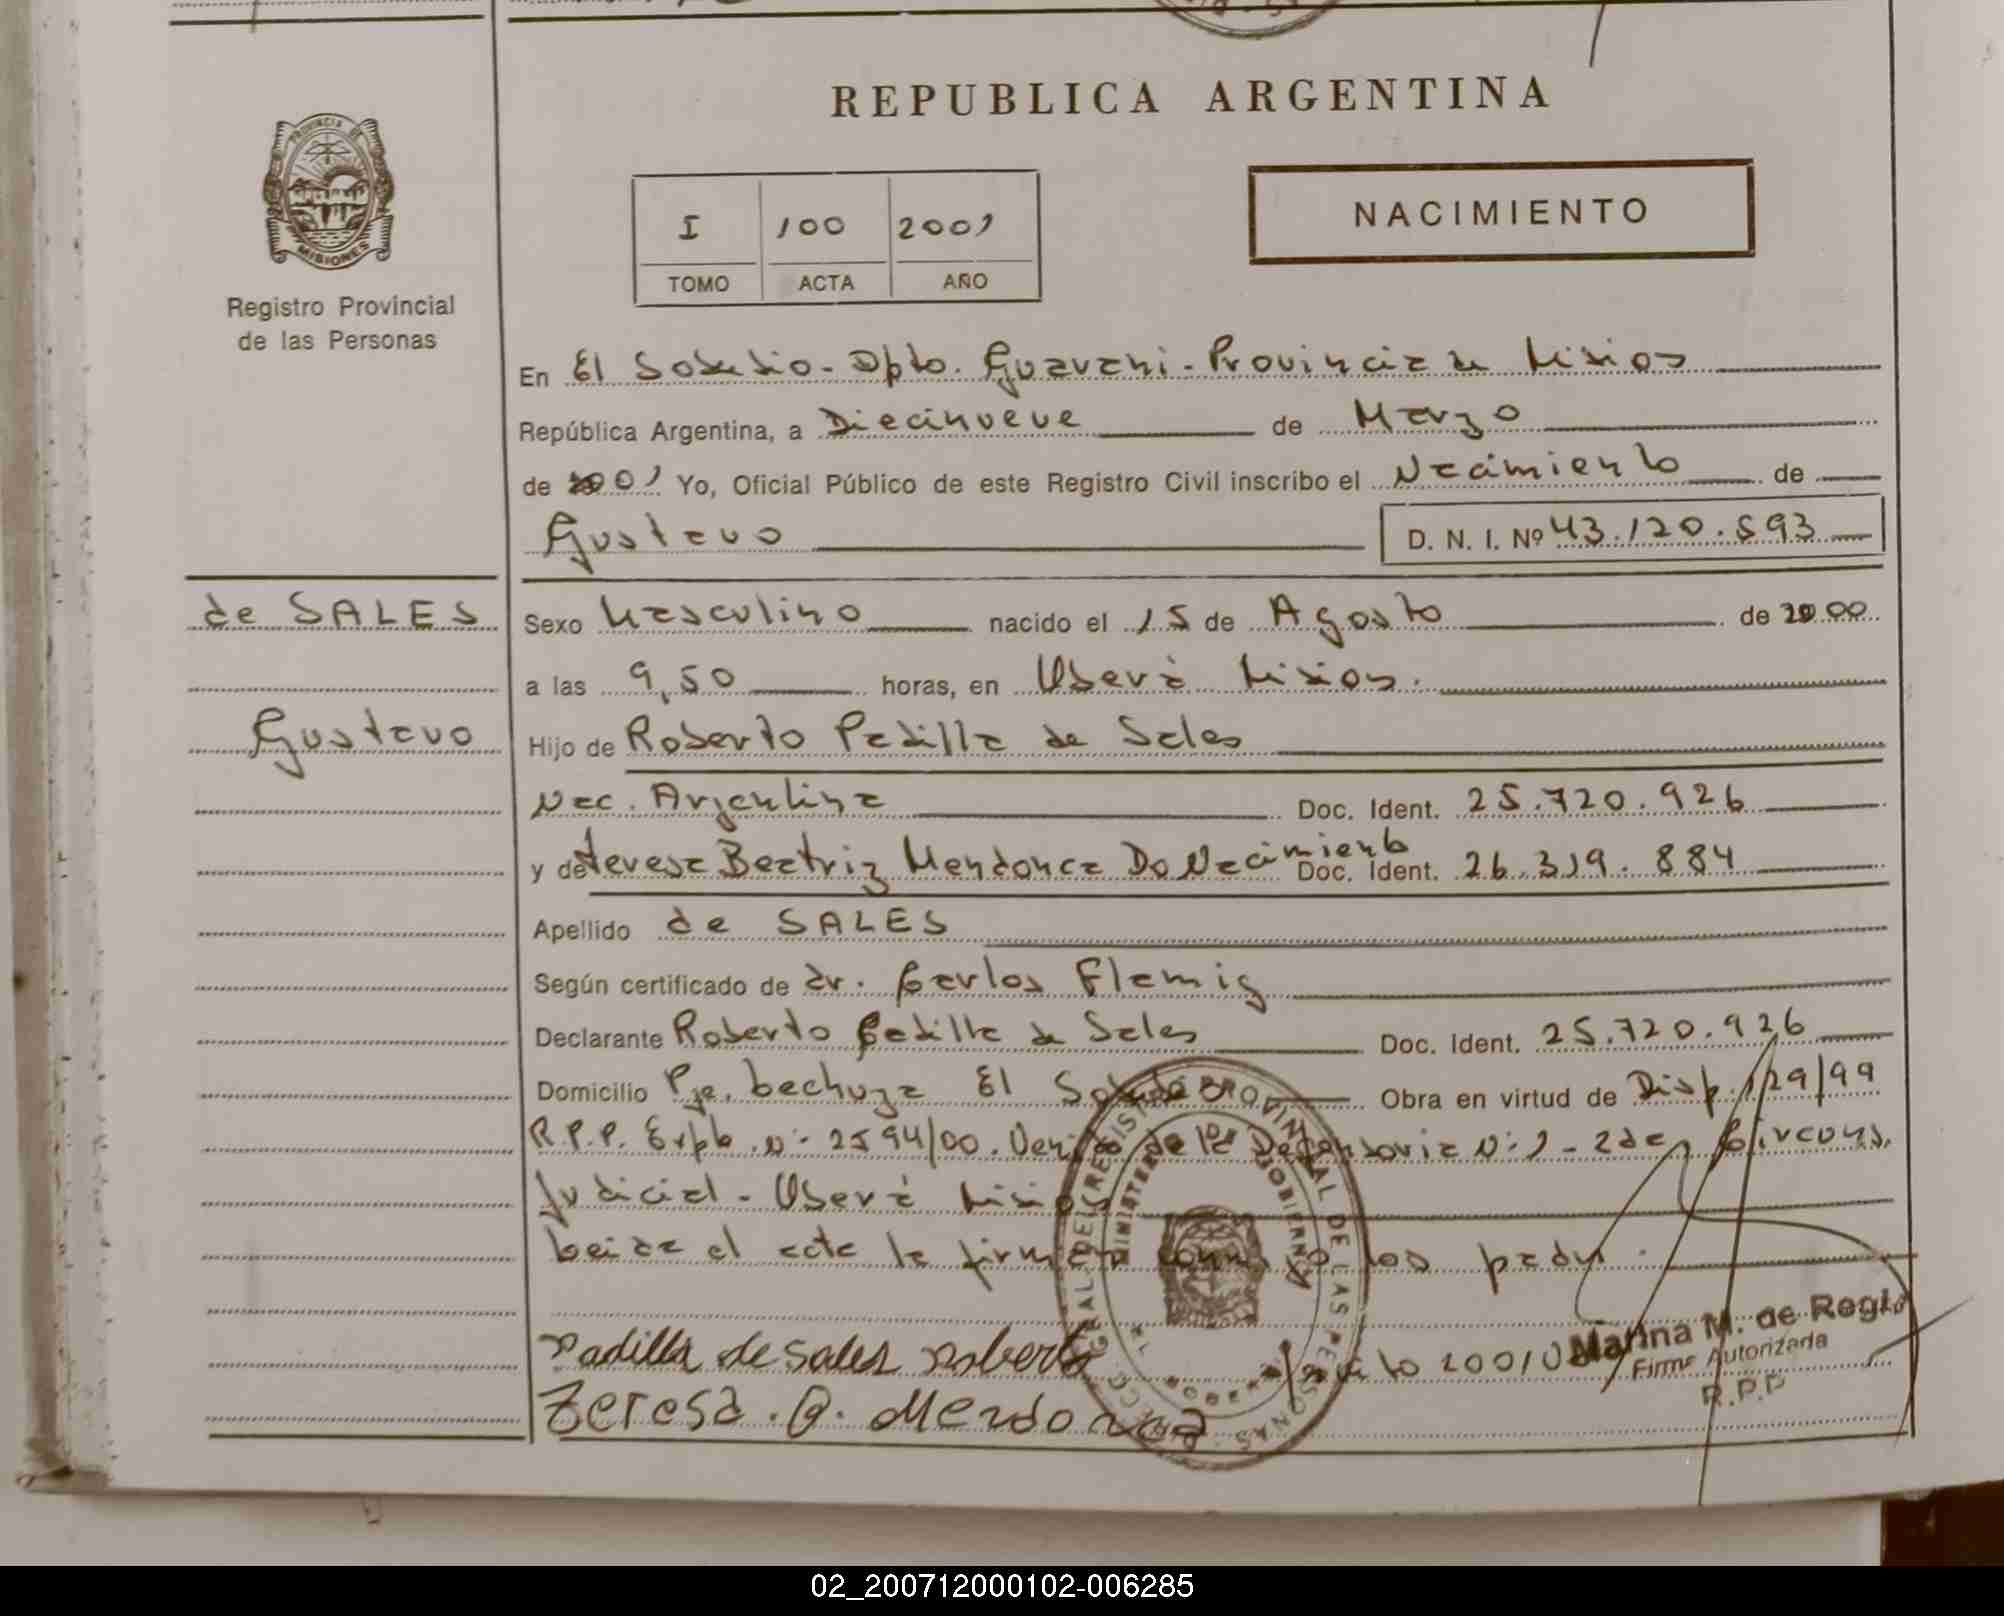 REPUBLICA ARGENTINA
PROVINCIA DE
MISIONES
Registro Provincial
de las Personas
I 100 2001
TOMO ACTA AÑO
NACIMIENTO
En El Soberbio - Dpto. Guarani - Provincia de Misiones
República Argentina, a Diecinueve de Marzo
de 2001 Yo, Oficial Público de este Registro Civil inscribo el Nacimiento de
Gustavo D. N. I. Nº 43.120.593
de SALES
Gustavo
Sexo Masculino nacido el 15 de Agosto de 2000
a las 9,50 horas, en Oberá Misiones.
Hijo de Roberto Padilla de Sales
Nac. Argentina Doc. Ident. 25.720.926
y de Teresa Beatriz Mendonca Do Nacimiento Doc. Ident. 26.319.884
Apellido de SALES
Según certificado de dr. Carlos Flemig
Declarante Roberto Padilla de Sales Doc. Ident. 25.720.926
Domicilio Pje. Lechuza El Soberbio Obra en virtud de Disp. 129/99
R.P.P. Expte. Nº 2594/00. de la Defensoria Nº 1 - 2da Circuns.
Judicial - Oberá Misiones
Leida el acta la firman conmigo los padres.
Padilla de Sales Roberto
Teresa. B. Mendonca
Marina M. de Regl
Firma Autorizada
R.P.P
02_200712000102-006285